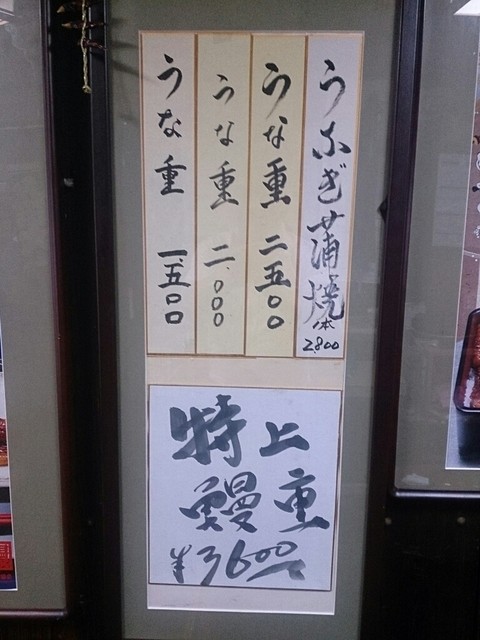 うなぎ蒲焼 一本 2,800
うな重 二五〇〇
うな重 二、〇〇〇
うな重 一、五〇〇
特上
鰻重
¥3600